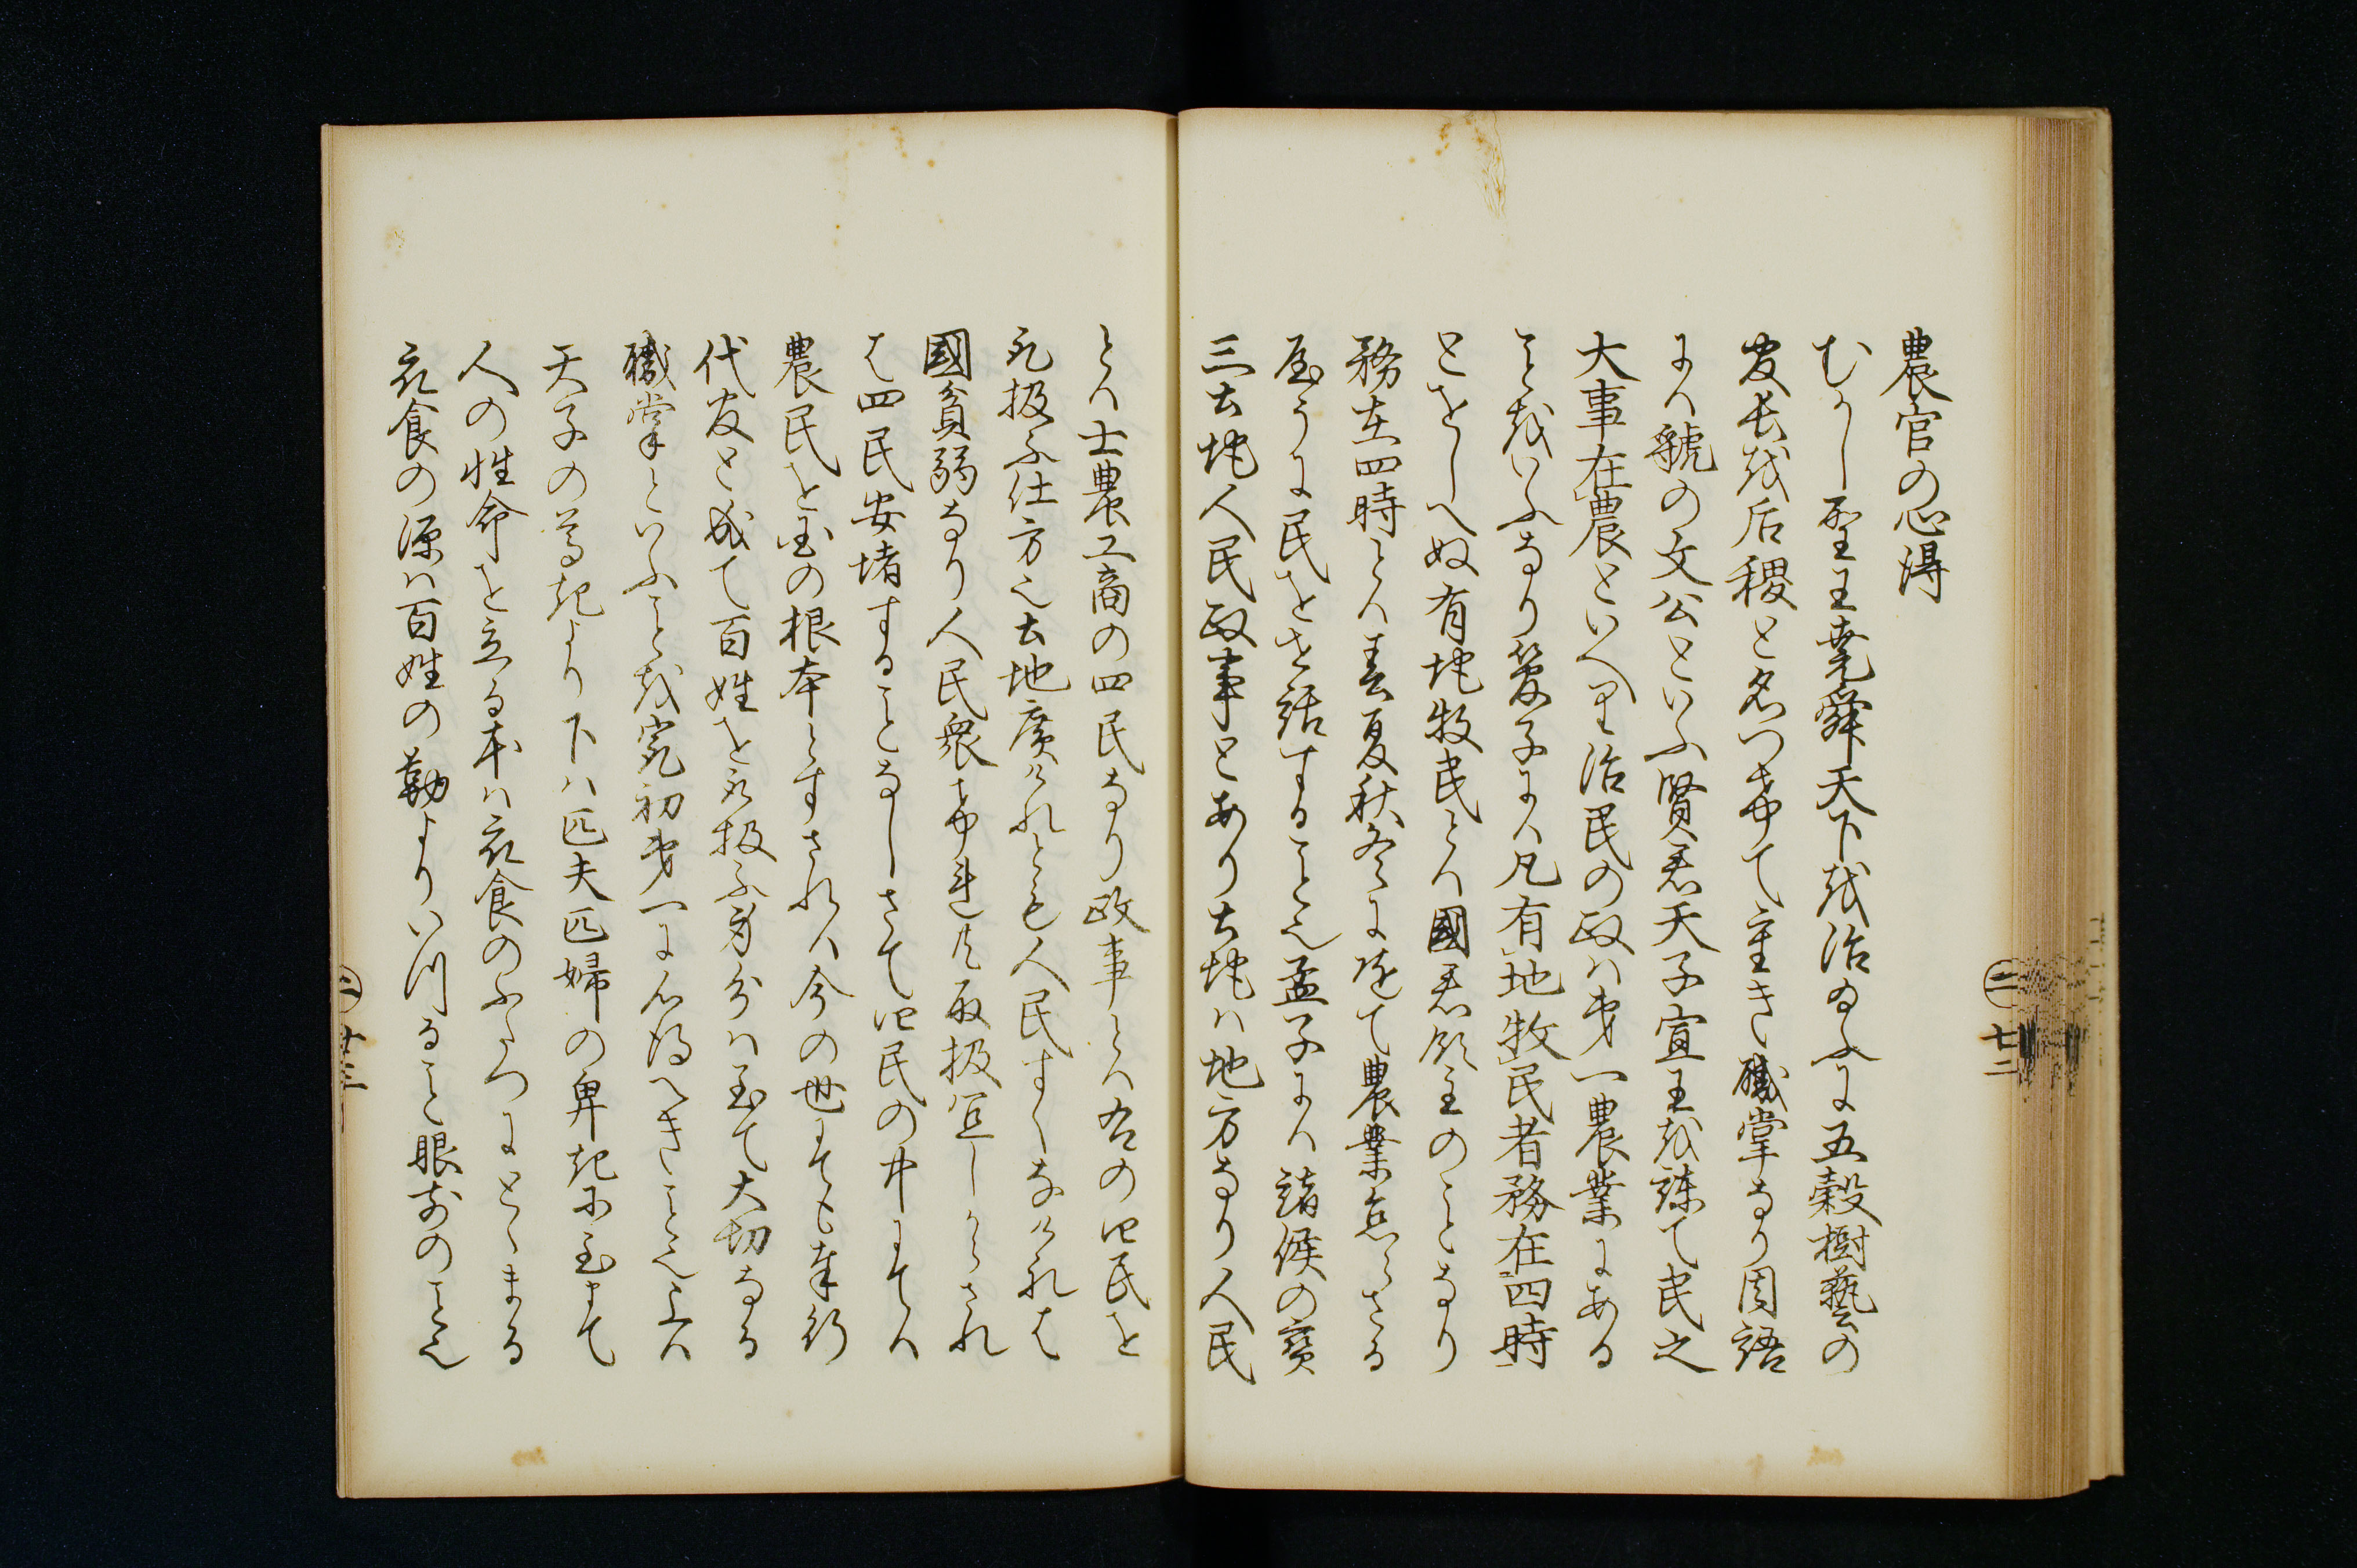 農官の心得
むかし聖王堯舜天下越治るふに五穀樹藝の
官長越后稷と名つけて重き職掌なり周語
には虢の文公といふ賢君天子宣王越諫て民之
大事在農といへり治民の政ハ第一農業にある
こと越いふなり管子には凡有地牧民者務在四時
とをしへぬ有地牧民とは國君領主のことなり
務在四時とは春夏秋冬に随て農業怠らさる
屋うに民をせ話することゝ也孟子には諸侯の寳
三土地人民政事とあり土地ハ地方なり人民
とハ士農工商の四民なり政事とは右の四民を
取扱ふ仕方也土地廣けれとも人民すくなけれは
國貧弱なり人民衆けれ共取扱宜しからされ
は四民安堵することなしさて四民の中にては
農民を国の根本とすされは今の世にても奉行
代官と成て百姓を取扱ふ身分ハ至て大切なる
職掌といふこと越最初第一に心得へきこと也上は
天子の尊起より下ハ匹夫匹婦の卑起に至まて
人の性命を立る本ハ衣食のふたつにとゝまる
衣食の源ハ百姓の勤よりいつること眼前のこと也
二 七二
二 廿三